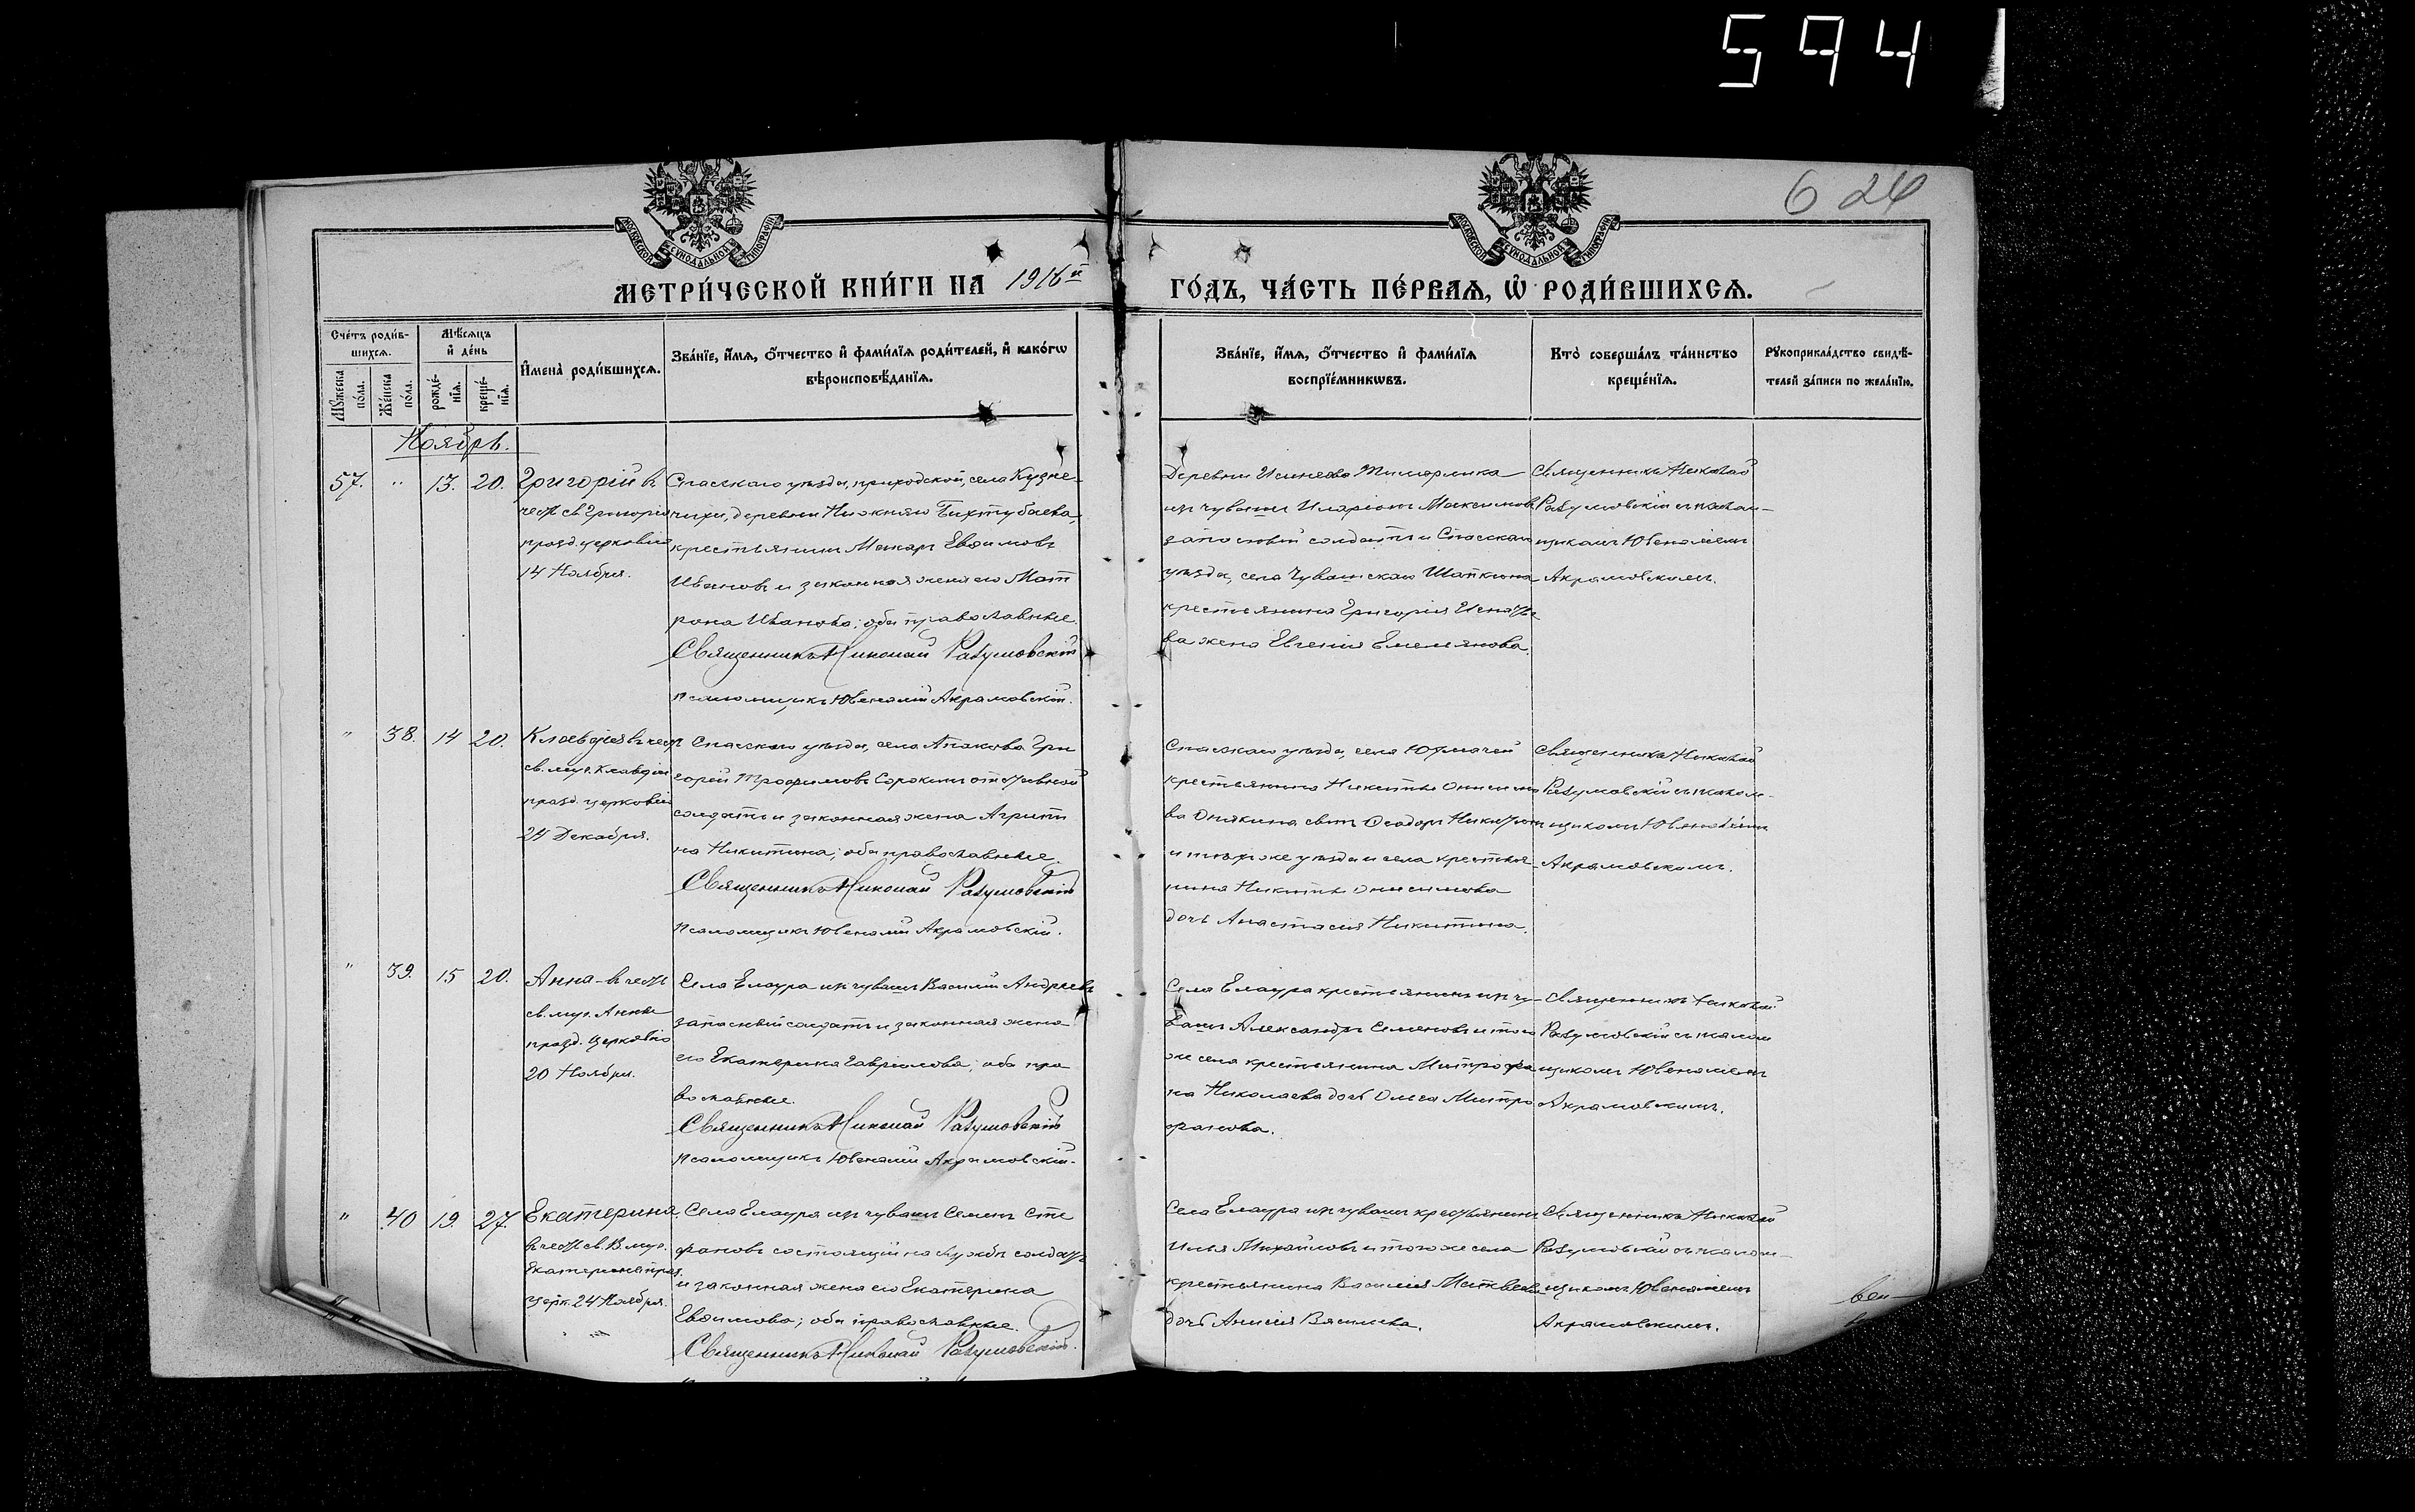 594
624
МОСКОВСКОЙ СѴНОДАЛЬНОЙ ТИПОГРАФІИ
МОСКОВСКОЙ СѴНОДАЛЬНОЙ ТИПОГРАФІИ
МЕТРИ́ЧЕСКОЙ КНИ́ГИ НА 1916й ГО́ДЪ, ЧА́СТЬ ПЕ́РВАѦ, Ѡ҆ РОДИ́ВШИХСѦ.
Сче́тъ роди́в-
шихсѧ.
Мꙋ́жеска по́ла.
Же́нска по́ла.
Мѣ́сѧцъ
и҆ де́нь
рожде́-
нїѧ.
креще́-
нїѧ.
И҆мена̀ роди́вшихсѧ.
Зва́нїе, и҆́мѧ, ѻ҆́тчество и҆ фами́лїѧ роди́телей, и҆ како́гѡ
вѣроисповѣ́данїѧ.
Зва́нїе, и҆́мѧ, ѻ҆́тчество и҆ фами́лїѧ
воспрїе́мникѡвъ.
Кто̀ соверша́лъ та́инство
креще́нїѧ.
Рꙋкоприкла́дство свидѣ́-
телей за́писи по жела́нїю.
Ноябрь.
57. " 13. 20.
Григорій въ
чест св. Григорія
празд. церковію
14 Ноября.
Спасскаго уѣзда, приходской, села Кузне-
чихи, деревни Нижняго Биктубаева,
крестьянинъ Макаръ Евѳимовъ
Ивановъ и законная жена его Мат
рона Иванова; оба православные.
Священникъ Николай Разумовскій
Псаломщикъ Ювеналій Акрамовскій.
Деревни
изъ чувашъ Иларіонъ Максимовъ
запасный солдатъ и Спасскаго
уѣзда, села Чувашскаго Шапкина
крестьянина Григорія
ва жена Евгенія Емелянова.
Священникъ Николай
Разумовскій съ псалом-
щикомъ Ювеналіемъ
Акрамовскимъ.
" 38. 14 20.
Клавдія въ чест
св. муч. Клавдіи
празд. церковію
24 Декабря.
Спасскаго уѣзда, села Апакова Гри
горій Трофимовъ Сорокинъ отставной
солдатъ и законная жена Агрипи
на Никитина; оба православные.
Священникъ Николай Разумовскій
Псаломщикъ Ювеналій Акрамовскій.
Спасскаго уѣзда, села Юхмачей
крестьянина Никиты Онисимо
ва сынъ Ѳеодоръ Никитинъ
и тогоже уѣзда и села крестья-
нина Никиты Онисимова
дочь Анастасія Никитина.
Священникъ Николай
Разумовскій съ псалом-
щикомъ Ювеналіемъ
Акрамовскимъ.
" 39. 15 20.
Анна - въ честь
св. муч. Анны
празд. церковію
20 Ноября.
Села Елаура изъ чувашъ Василій Андреевъ
запасный солдатъ и законная жена
его Екатерина Гавріилова; оба пра
вославные.
Священникъ Николай Разумовскій
Псаломщикъ Ювеналій Акрамовскій.
Села Елаура крестьянинъ изъ чу-
вашъ Александръ Семеновъ и того
же села крестьянина Митрофа
на Николаева дочь Ольга Митро
фанова.
Священникъ Николай
Разумовскій съ псалом
щикомъ Ювеналіемъ
Акрамовскимъ.
" 40 19. 27.
Екатерина
въ честь св. В. муч.
Екатерины праз.
церк. 24 Ноября.
Села Елаура изъ чувашъ Семенъ Сте
фановъ состоящій на службѣ солдатъ
и законная жена его Екатерина
Евѳимова; оба православные.
Священникъ Николай Разумовскій.
Села Елаура изъ чувашъ крестьянинъ
Илья Михайловъ и того же села
крестьянина Василія Матвеева
дочь Анисія Васильева.
Священникъ Николай
Разумовскій съ псалом-
щикомъ Ювеналіемъ
Акрамовскимъ.